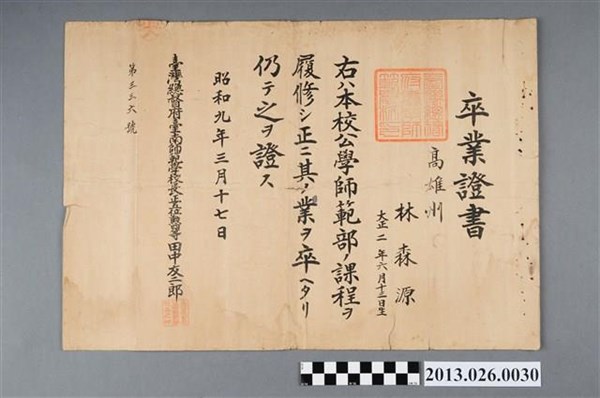 卒業證書
高雄州
林森源
大正二年六月十三日生
右ハ本校公學師範部ノ課程ヲ
履修シ正ニ其ノ業ヲ卒ヘタリ
仍テ之ヲ證ス
昭和九年三月十七日
臺灣總督府臺南師範學校長正五位勳四等田中友二郎
第三三六號
2013.026.0030